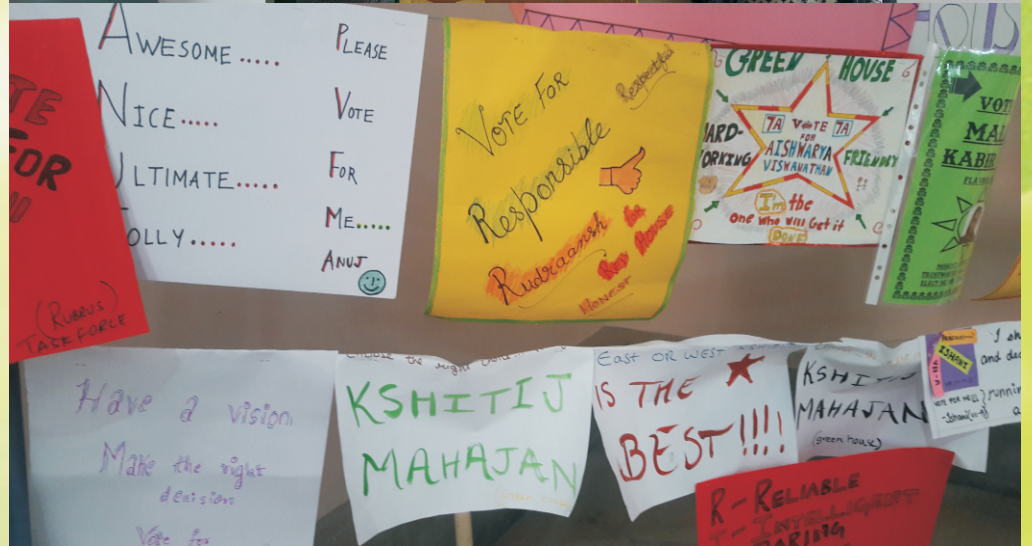 FOR
(RUBRUS)
TASKFORCE
AWESOME.....
NICE.....
ULTIMATE.....
JOLLY.....
PLEASE
VOTE
FOR
ME.....
ANUJ
VOTE FOR
Respectful
Responsible
Rudraansh for
Red House
HONEST
GREEN HOUSE
HARD-
WORKING
7A VOTE 7A
FOR
AISHWARYA
VISWANATHAN
FRIENDLY
I'm the
one who will Get it
DONE
VOTE
KABIR
Have a vision
Make the right
decision
Vote for
choose the right
KSHITIJ
MAHAJAN
(Green house)
EAST OR WEST
IS THE
BEST!!!!
KSHITIJ
MAHAJAN
(green house)
ISHANI
I sh
and de
runnin
R - RELIABLE
I - INTELLIGENT
DARING